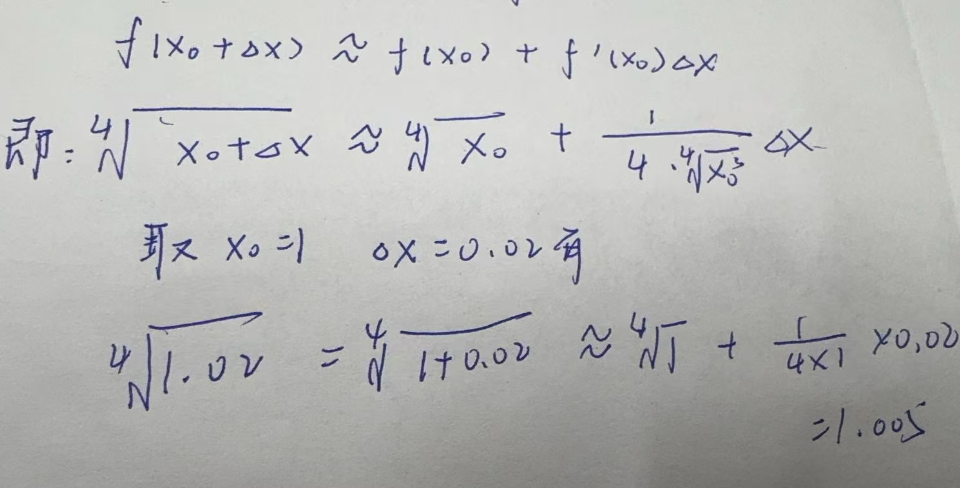 f(x₀+Δx) ≈ f(x₀) + f'(x₀)Δx
即: ∜(x₀+Δx) ≈ ∜x₀ + 1/(4·∜x₀³) Δx
取 x₀=1 Δx=0.02 有
∜1.02 = ∜(1+0.02) ≈ ∜1 + 1/(4×1) ×0.02
=1.005